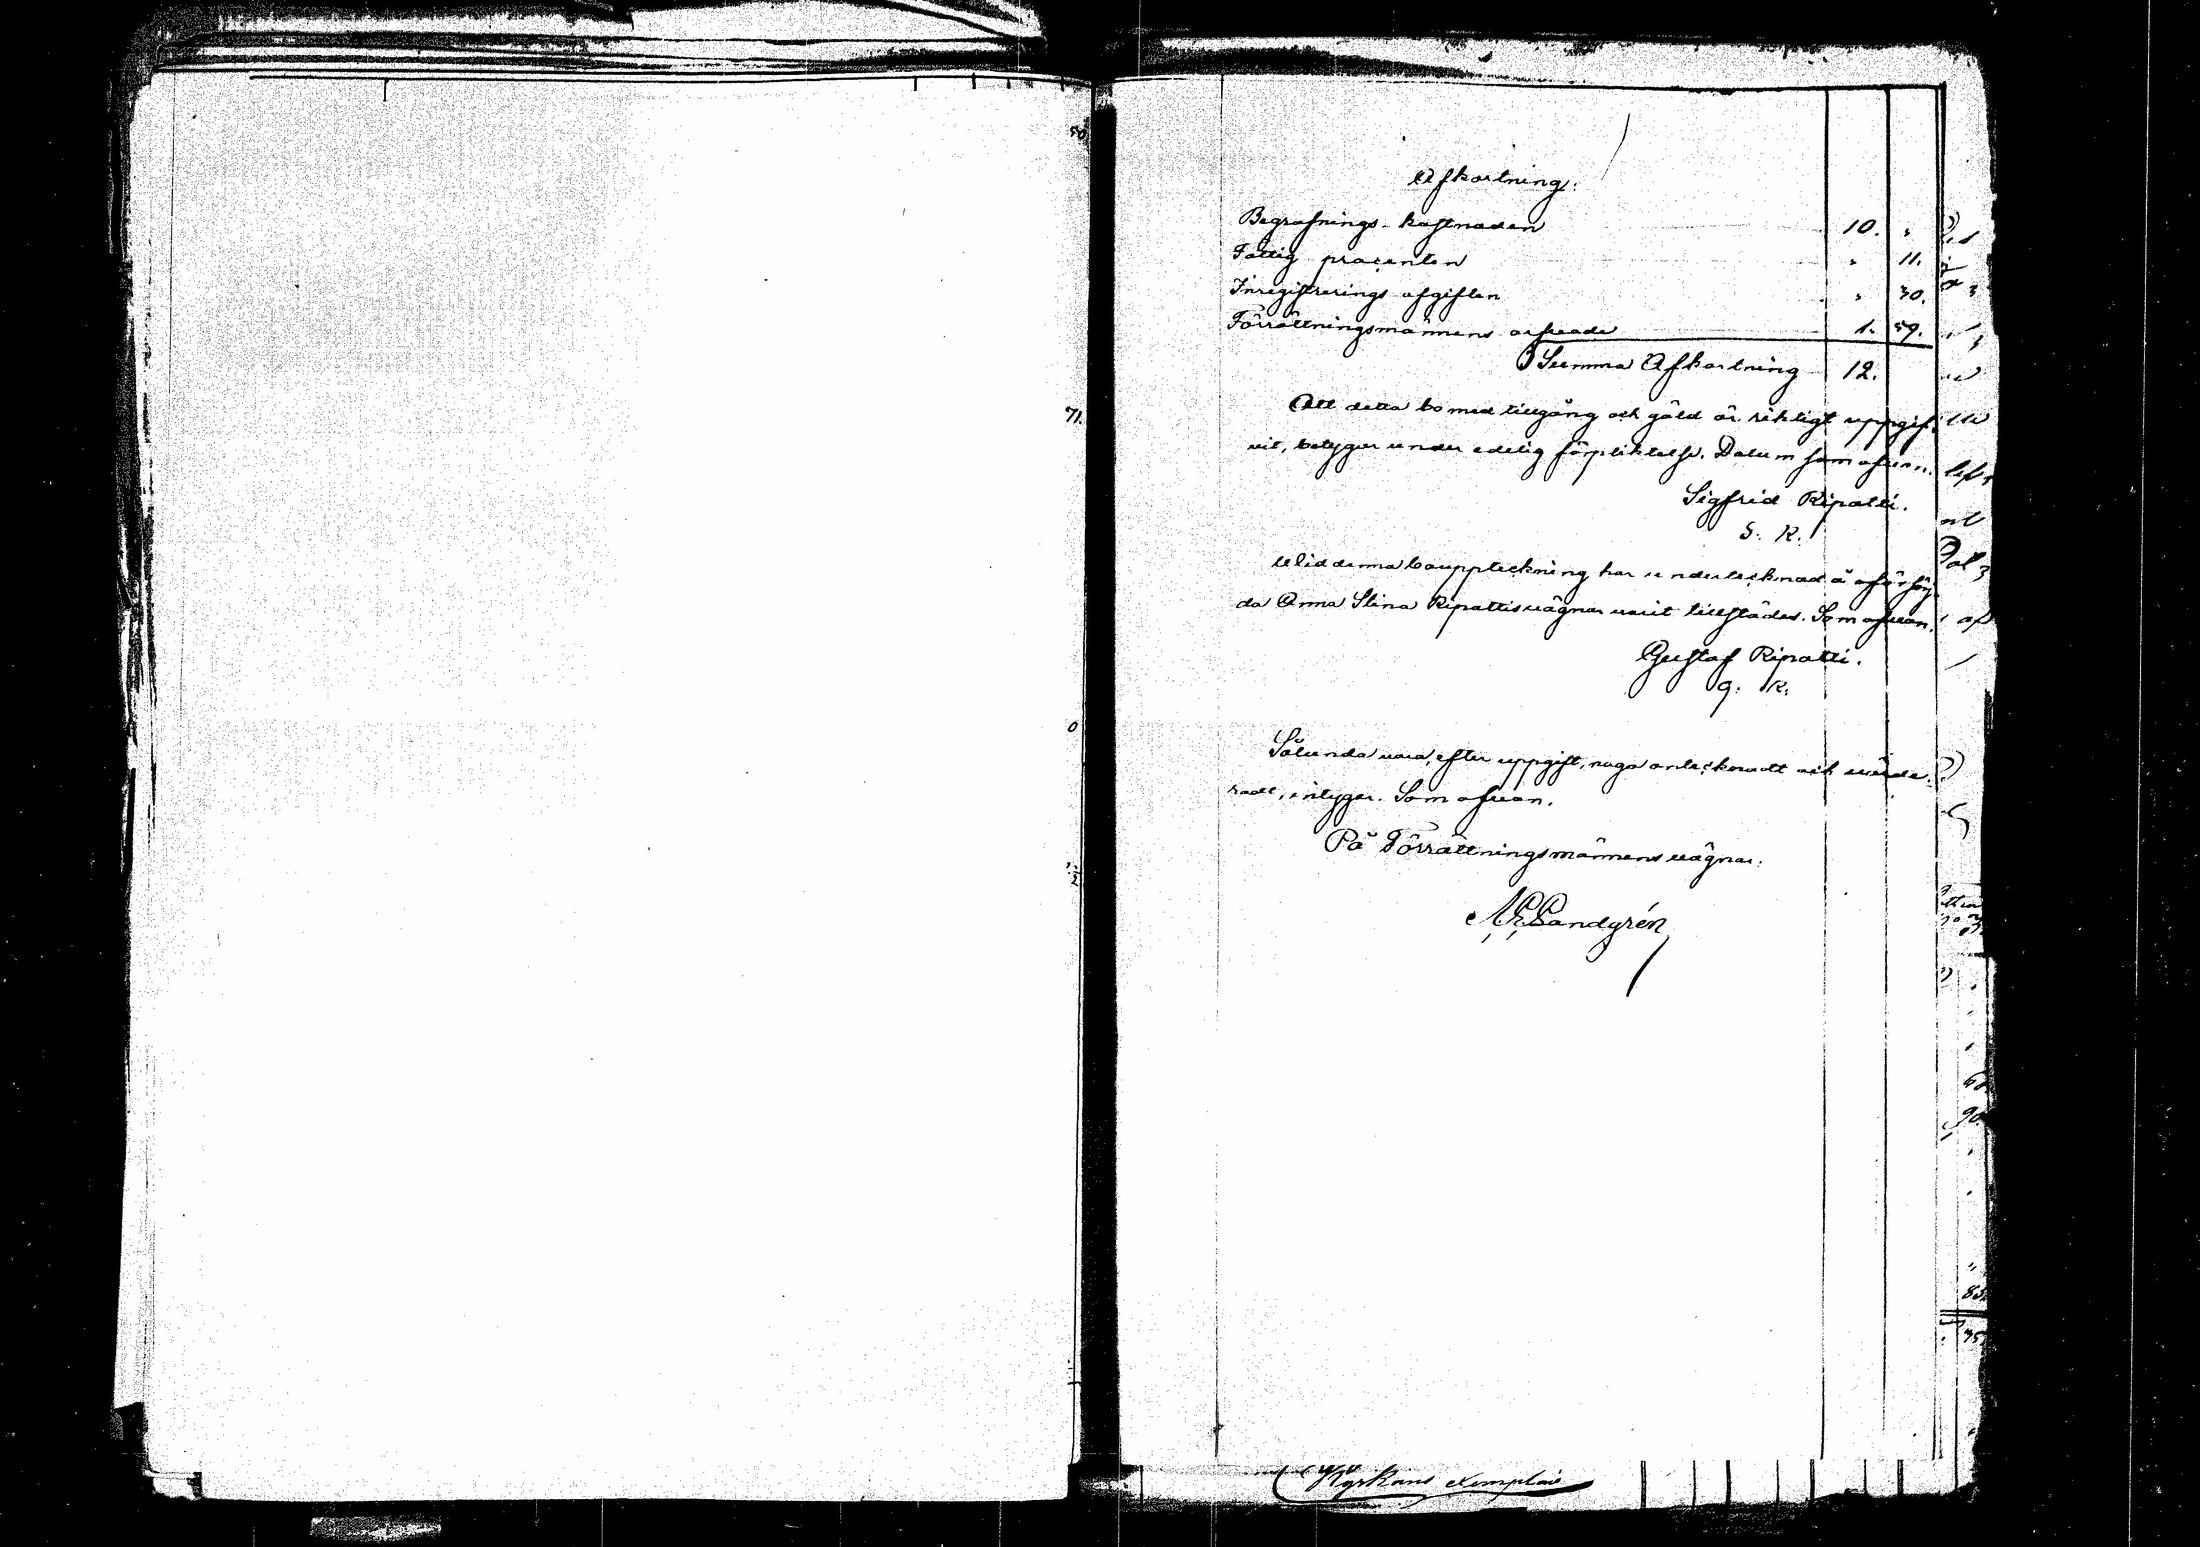 Afkortning.
Begrafnings-kostnaden 10. "
Fattig procenten " 11.
Inregistrerings afgiften " 30.
Förrättningsmännens arfvode 1. 59.
Summa Afkortning 12.
Att detta bo med tillgång och gäld är riktigt uppgif-
vit, betygar under edelig förpliktelse. Datum som ofvan.
Sigfrid Ripatti.
S. R.
Wid denna bouppteckning har undertecknad å
da Anna Stina Ripattis vägnar varit tillstädes. Som ofvan.
Gustaf Ripatti.
G. R.
Sålunda vara, efter uppgift, noga antecknadt och värde-
radt, intygar. Som ofvan.
På Förrättningsmännens vägnar:
Sandgrén
Kyrkans exemplar